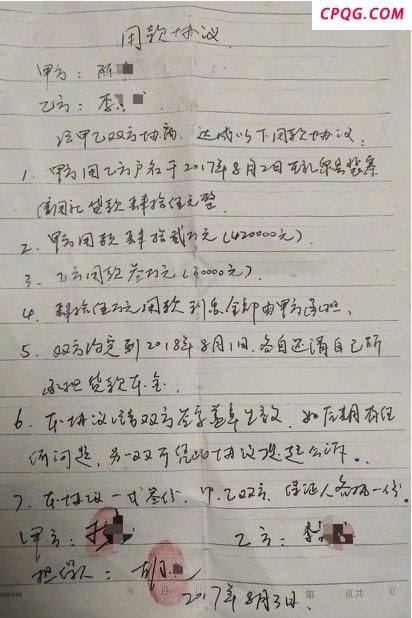 CPQG.COM
用款协议
甲方：陈
乙方：李
经甲乙双方协商，达成以下用款协议：
1、甲方用乙方户名于2017年8月2日在礼泉县
信用社贷款肆拾伍元整
2、甲方用款肆拾贰万元（420000元）。
3、乙方用款叁万元（30000元）
4、肆拾伍万元用款利息全部由甲方承担、
5、双方约定到2018年8月1日、各自还清自己所
承担贷款本金。
6、本协议经双方签字盖章生效，如后期有任
何问题，另一双可凭此协议提起公诉。
7、本协议一式叁份，甲、乙双方、保证人各执一份。
甲方：
乙方：李
担保人：胡
2017年8月3日、
年 月 第 页共 页